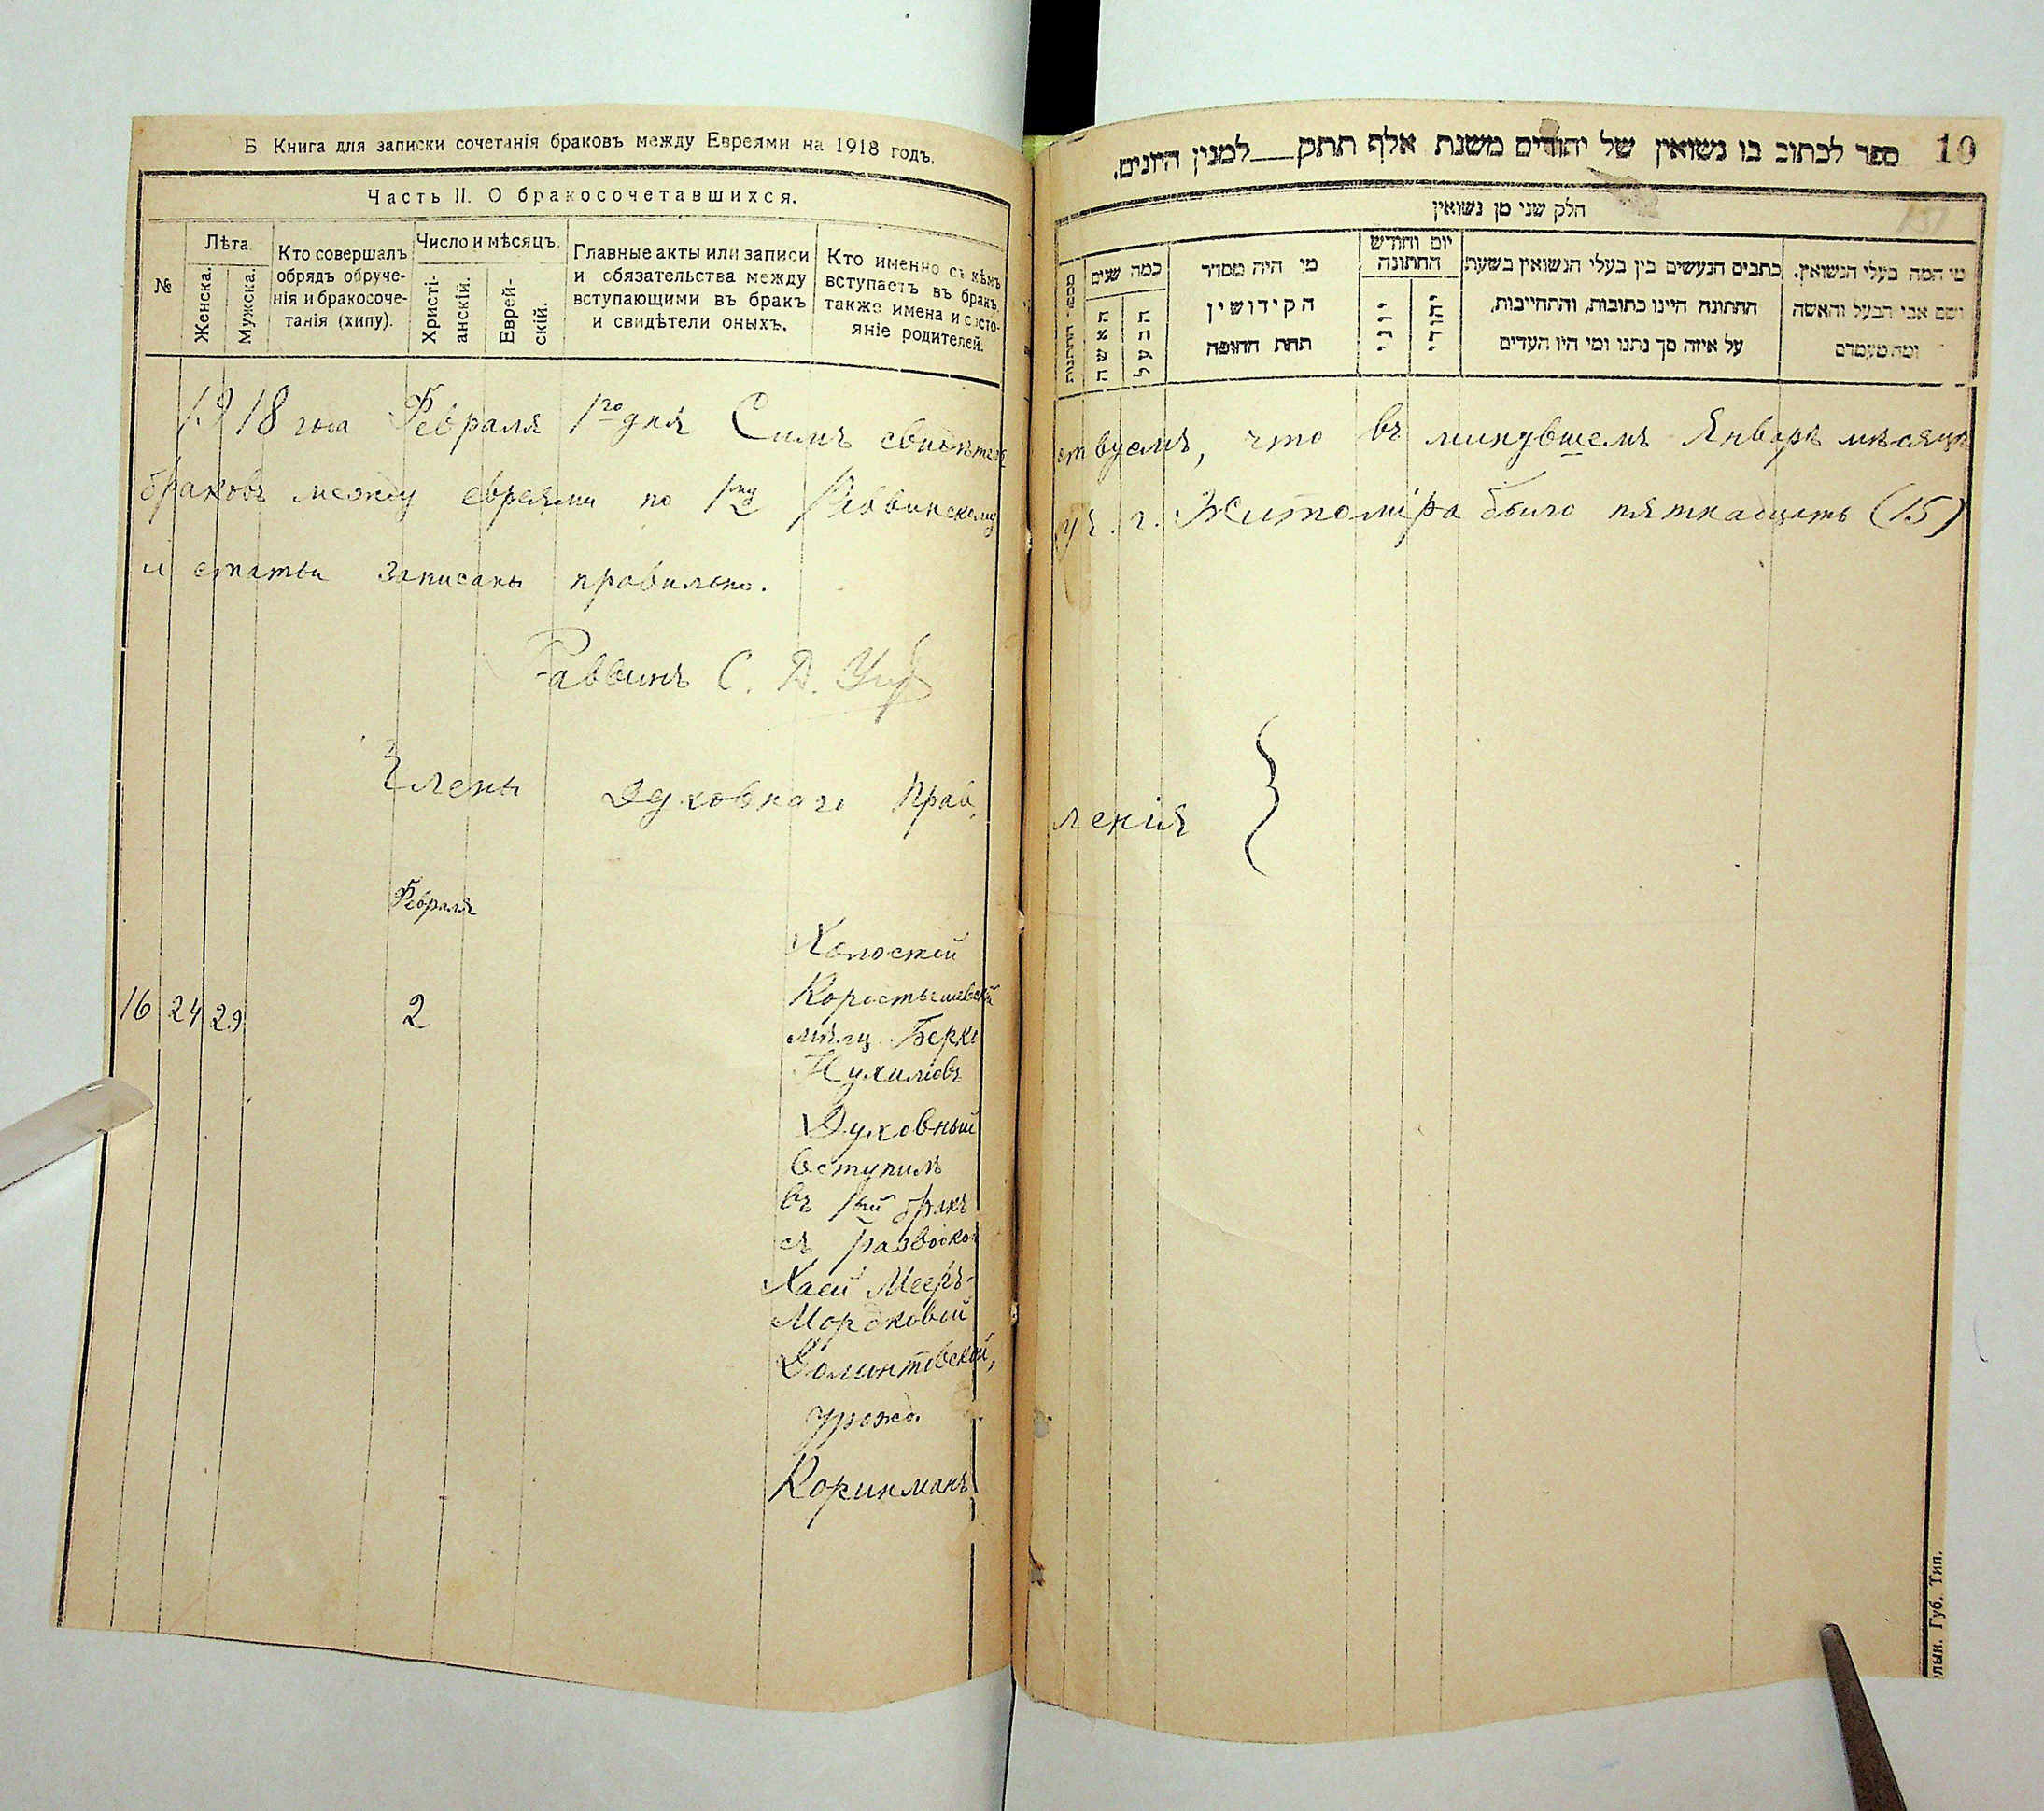 Б. Книга для записки сочетанія браковъ между Евреями на 1918 годъ.
Часть II. О бракосочетавшихся.
№
Лѣта.
Женска.
Мужска.
Кто совершалъ
обрядъ обруче-
нія и бракосоче-
танія (хипу).
Число и мѣсяцъ.
Христі-
анскій.
Еврей-
скій.
Главные акты или записи
и обязательства между
вступающими въ бракъ
и свидѣтели оныхъ.
Кто именно съ кѣмъ
вступаетъ въ бракъ,
также имена и состо-
яніе родителей.
1918 года Февраля 1го дня Симъ свидѣтель
браковъ между евреями по 1му Раввинскому
и статьи записаны правильно.
Раввинъ С. Д.
Члены Духовнаго Прав
Февраля
16 24 29 2
Холостой
Коростышевскій
мѣщ. Берко
Нухимовъ
Духовный
вступилъ
въ 1ый бракъ
съ разводкой
Хаей Мееръ-
Мордковой
Долинтовской,
урожд.
Коринманъ
ספר לכתוב בו נשואין של יהודים משנת אלף תתק למנין היונים.
10
חלק שני מן נשואין
מספר החתונות
כמה שנים
האשה
הבעל
מי היה מסדר
הקידושין
תחת החופה
יום וחודש
החתונה
יוני
יהודי
כתבים הנעשים בין בעלי הנשואין בשעת
החתונה היינו כתובות, והתחייבות,
על איזה סך נתנו ומי היו העדים
מי המה בעלי הנשואין,
ושם אבי הבעל והאשה
ומה מעמדם
ствуемъ, что въ минувшемъ Январѣ мѣсяцѣ
уч. г. Житоміра было пятнадцать (15)
ленія
лын. Губ. Тип.